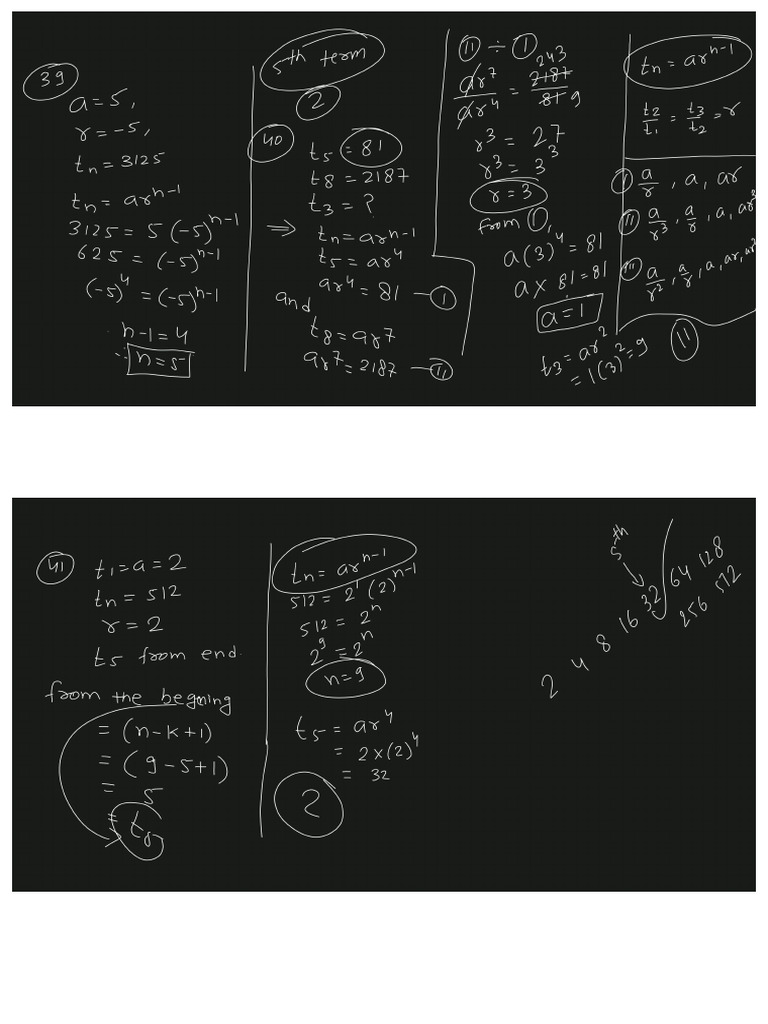 39
a = 5,
r = -5,
tn = 3125
tn = ar^n-1
3125 = 5(-5)^n-1
625 = (-5)^n-1
(-5)^4 = (-5)^n-1
n-1 = 4
∴ n = 5
5th term
2
40
t5 = 81
t8 = 2187
t3 = ?
⇒ tn = ar^n-1
t5 = ar^4
ar^4 = 81 — I
and
t8 = ar^7
ar^7 = 2187 — II
II ÷ I
ar^7/ar^4 = 2187/81 243 9
r^3 = 27
r^3 = 3^3
r = 3
from I,
a(3)^4 = 81
a × 81 = 81
a = 1
t3 = ar^2
= 1(3)^2 = 9
II
tn = ar^n-1
t2/t1 = t3/t2 = r
I a/r, a, ar
II a/r^3, a/r, a, ar^3
III a/r^2, a/r, a, ar, ar^2
41
t1 = a = 2
tn = 512
r = 2
t5 from end.
from the begning
= (n-k+1)
= (9-5+1)
= 5
= t5
tn = ar^n-1
512 = 2^1 (2)^n-1
512 = 2^n
2^9 = 2^n
n = 9
t5 = ar^4
= 2×(2)^4
= 32
2
5th
2 4 8 16 32 64 128
256 512